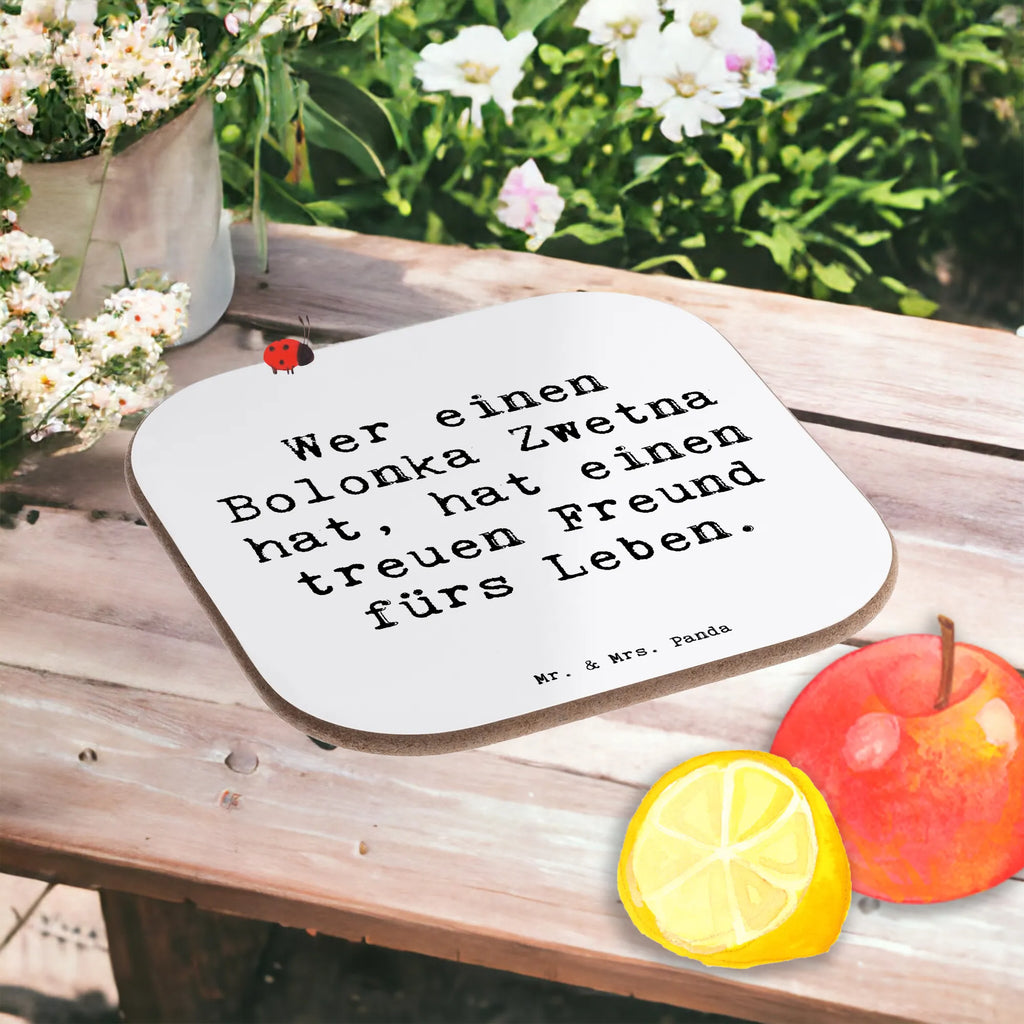 Wer einen
Bolonka Zwetna
hat, hat einen
treuen Freund
fürs Leben.
Mr. & Mrs. Panda